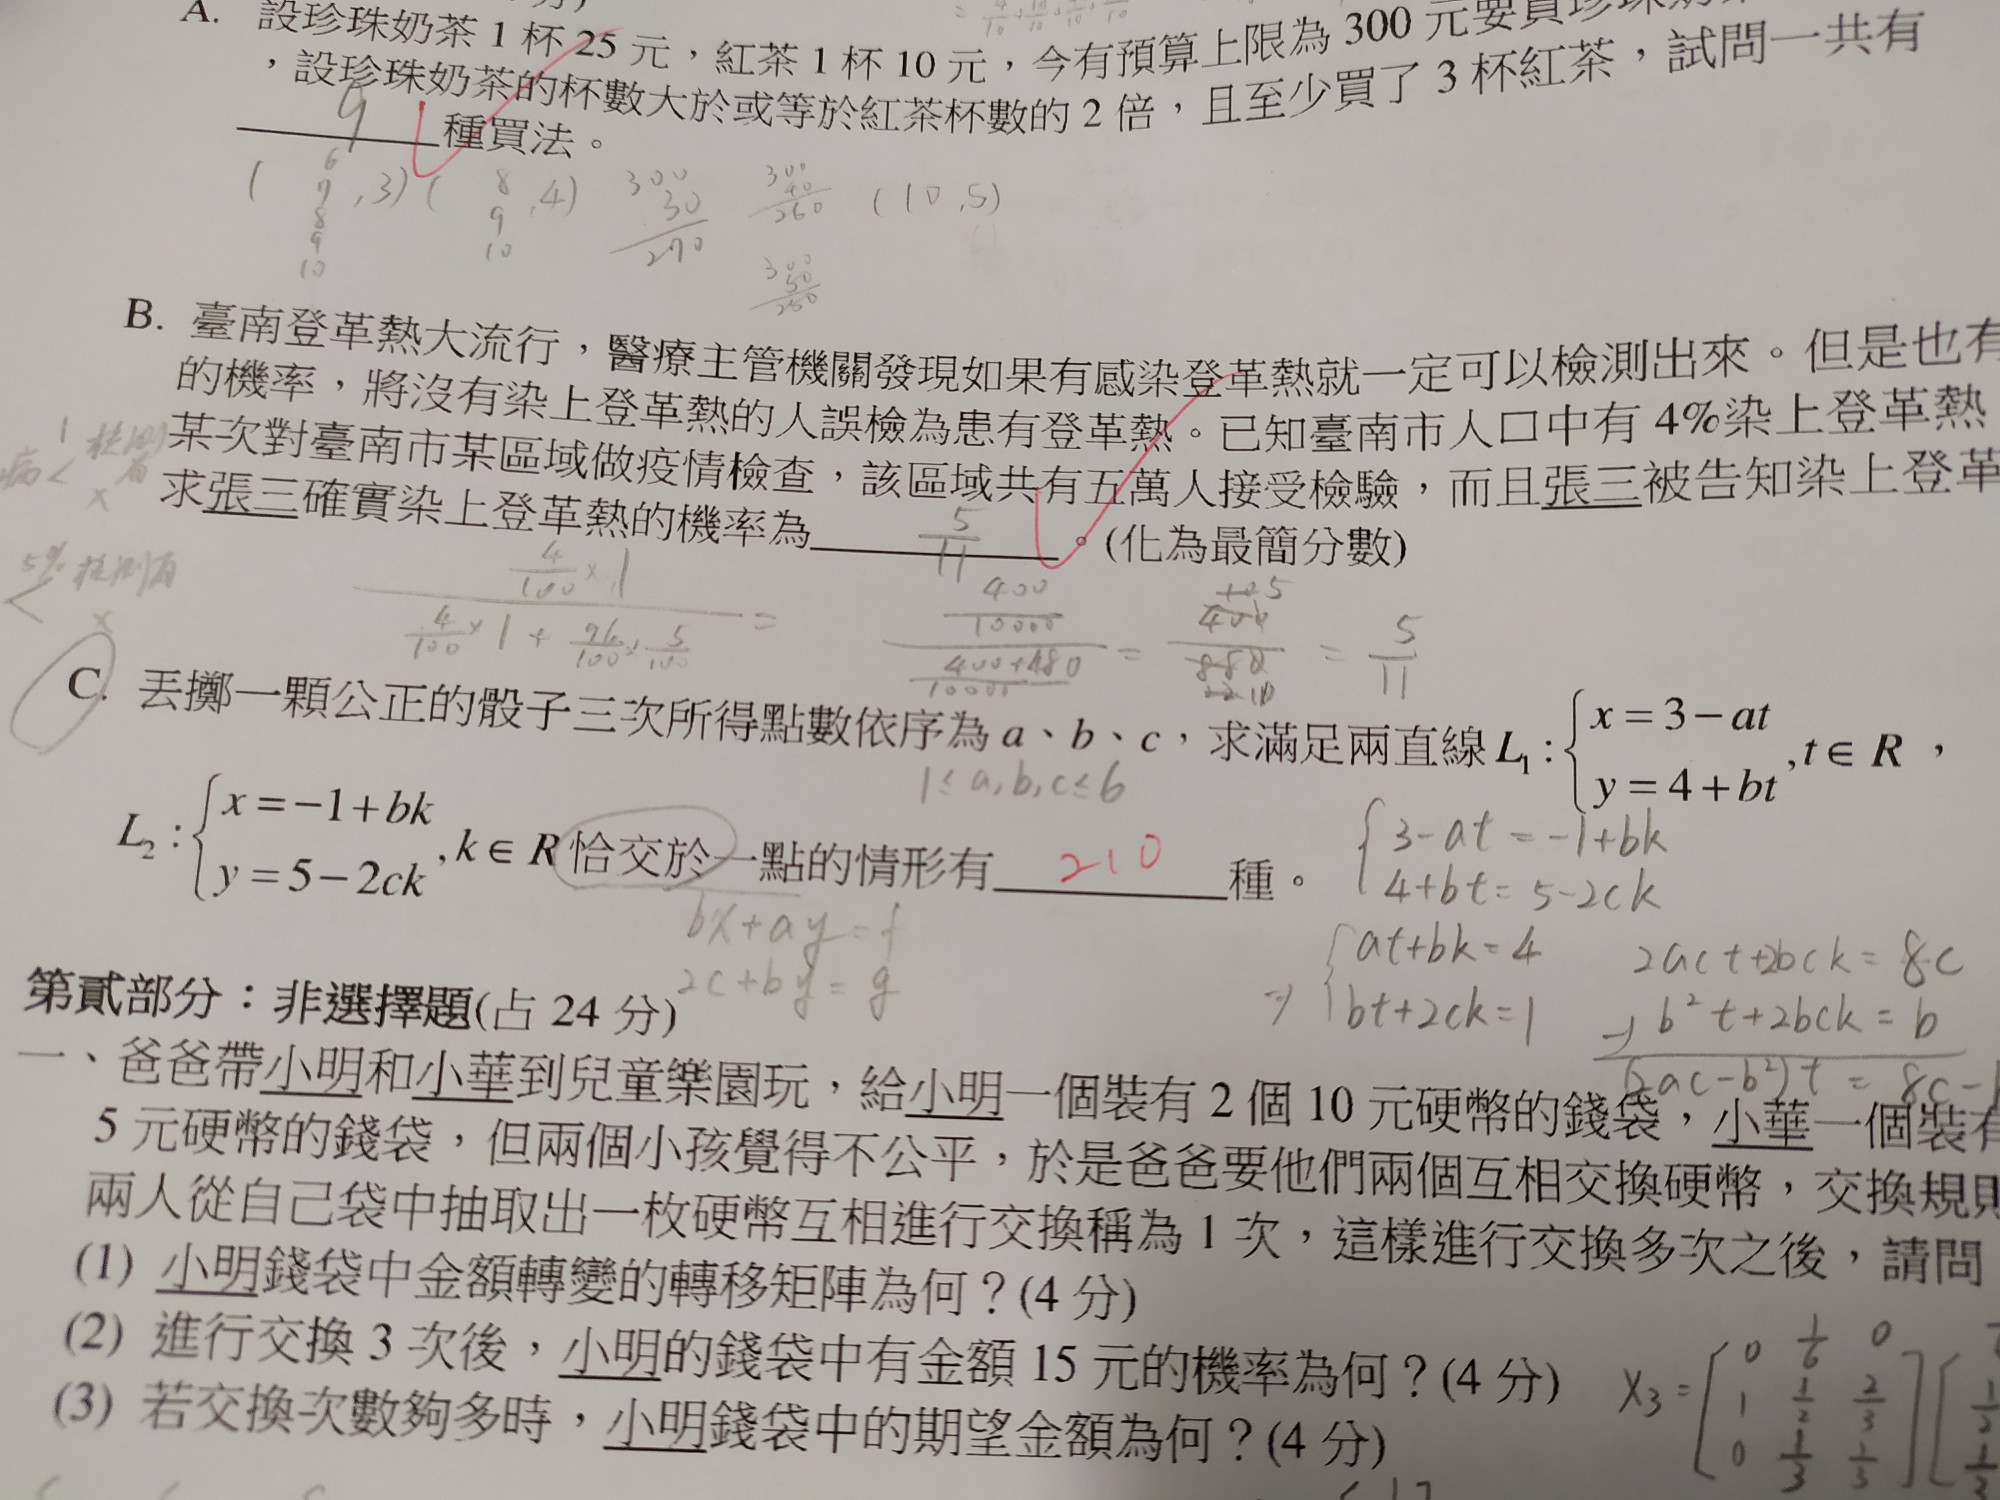 A. 設珍珠奶茶 1 杯 25 元，紅茶 1 杯 10 元，今有預算上限為 300 元要買珍珠奶
，設珍珠奶茶的杯數大於或等於紅茶杯數的 2 倍，且至少買了 3 杯紅茶，試問一共有
9 種買法。
( 6 7 8 9 10 ,3) ( 8 9 10 ,4) 300 30 270 300 40 260 (10,5)
300 50 250
B. 臺南登革熱大流行，醫療主管機關發現如果有感染登革熱就一定可以檢測出來。但是也有
的機率，將沒有染上登革熱的人誤檢為患有登革熱。已知臺南市人口中有 4%染上登革熱
某次對臺南市某區域做疫情檢查，該區域共有五萬人接受檢驗，而且張三被告知染上登革
求張三確實染上登革熱的機率為 5/11 。(化為最簡分數)
病 < 1 檢測有 x
5% 檢測有
< x
4/100 × 1 / 4/100 × 1 + 96/100 × 5/100 = 400/10000 / 400+480/10000 = 400/880 = 5/11
C. 丟擲一顆公正的骰子三次所得點數依序為 a、b、c，求滿足兩直線 L₁ : { x = 3 − at
y = 4 + bt , t ∈ R ，
1≤a,b,c≤6
L₂ : { x = −1 + bk
y = 5 − 2ck , k ∈ R 恰交於一點的情形有 210 種。
{ 3-at = -1+bk
4+bt = 5-2ck
bx+ay = f
2c+by = g
⇒ { at+bk=4
bt+2ck=1
2act+2bck = 8c
-) b²t+2bck = b
(2ac-b²)t = 8c-
第貳部分：非選擇題(占 24 分)
一、爸爸帶小明和小華到兒童樂園玩，給小明一個裝有 2 個 10 元硬幣的錢袋，小華一個裝有
5 元硬幣的錢袋，但兩個小孩覺得不公平，於是爸爸要他們兩個互相交換硬幣，交換規則
兩人從自己袋中抽取出一枚硬幣互相進行交換稱為 1 次，這樣進行交換多次之後，請問
(1) 小明錢袋中金額轉變的轉移矩陣為何？(4 分)
(2) 進行交換 3 次後，小明的錢袋中有金額 15 元的機率為何？(4 分)
(3) 若交換次數夠多時，小明錢袋中的期望金額為何？(4 分)
X₃ = [ 0 1/6 0
1 1/2 2/3
0 1/3 1/3 ] [